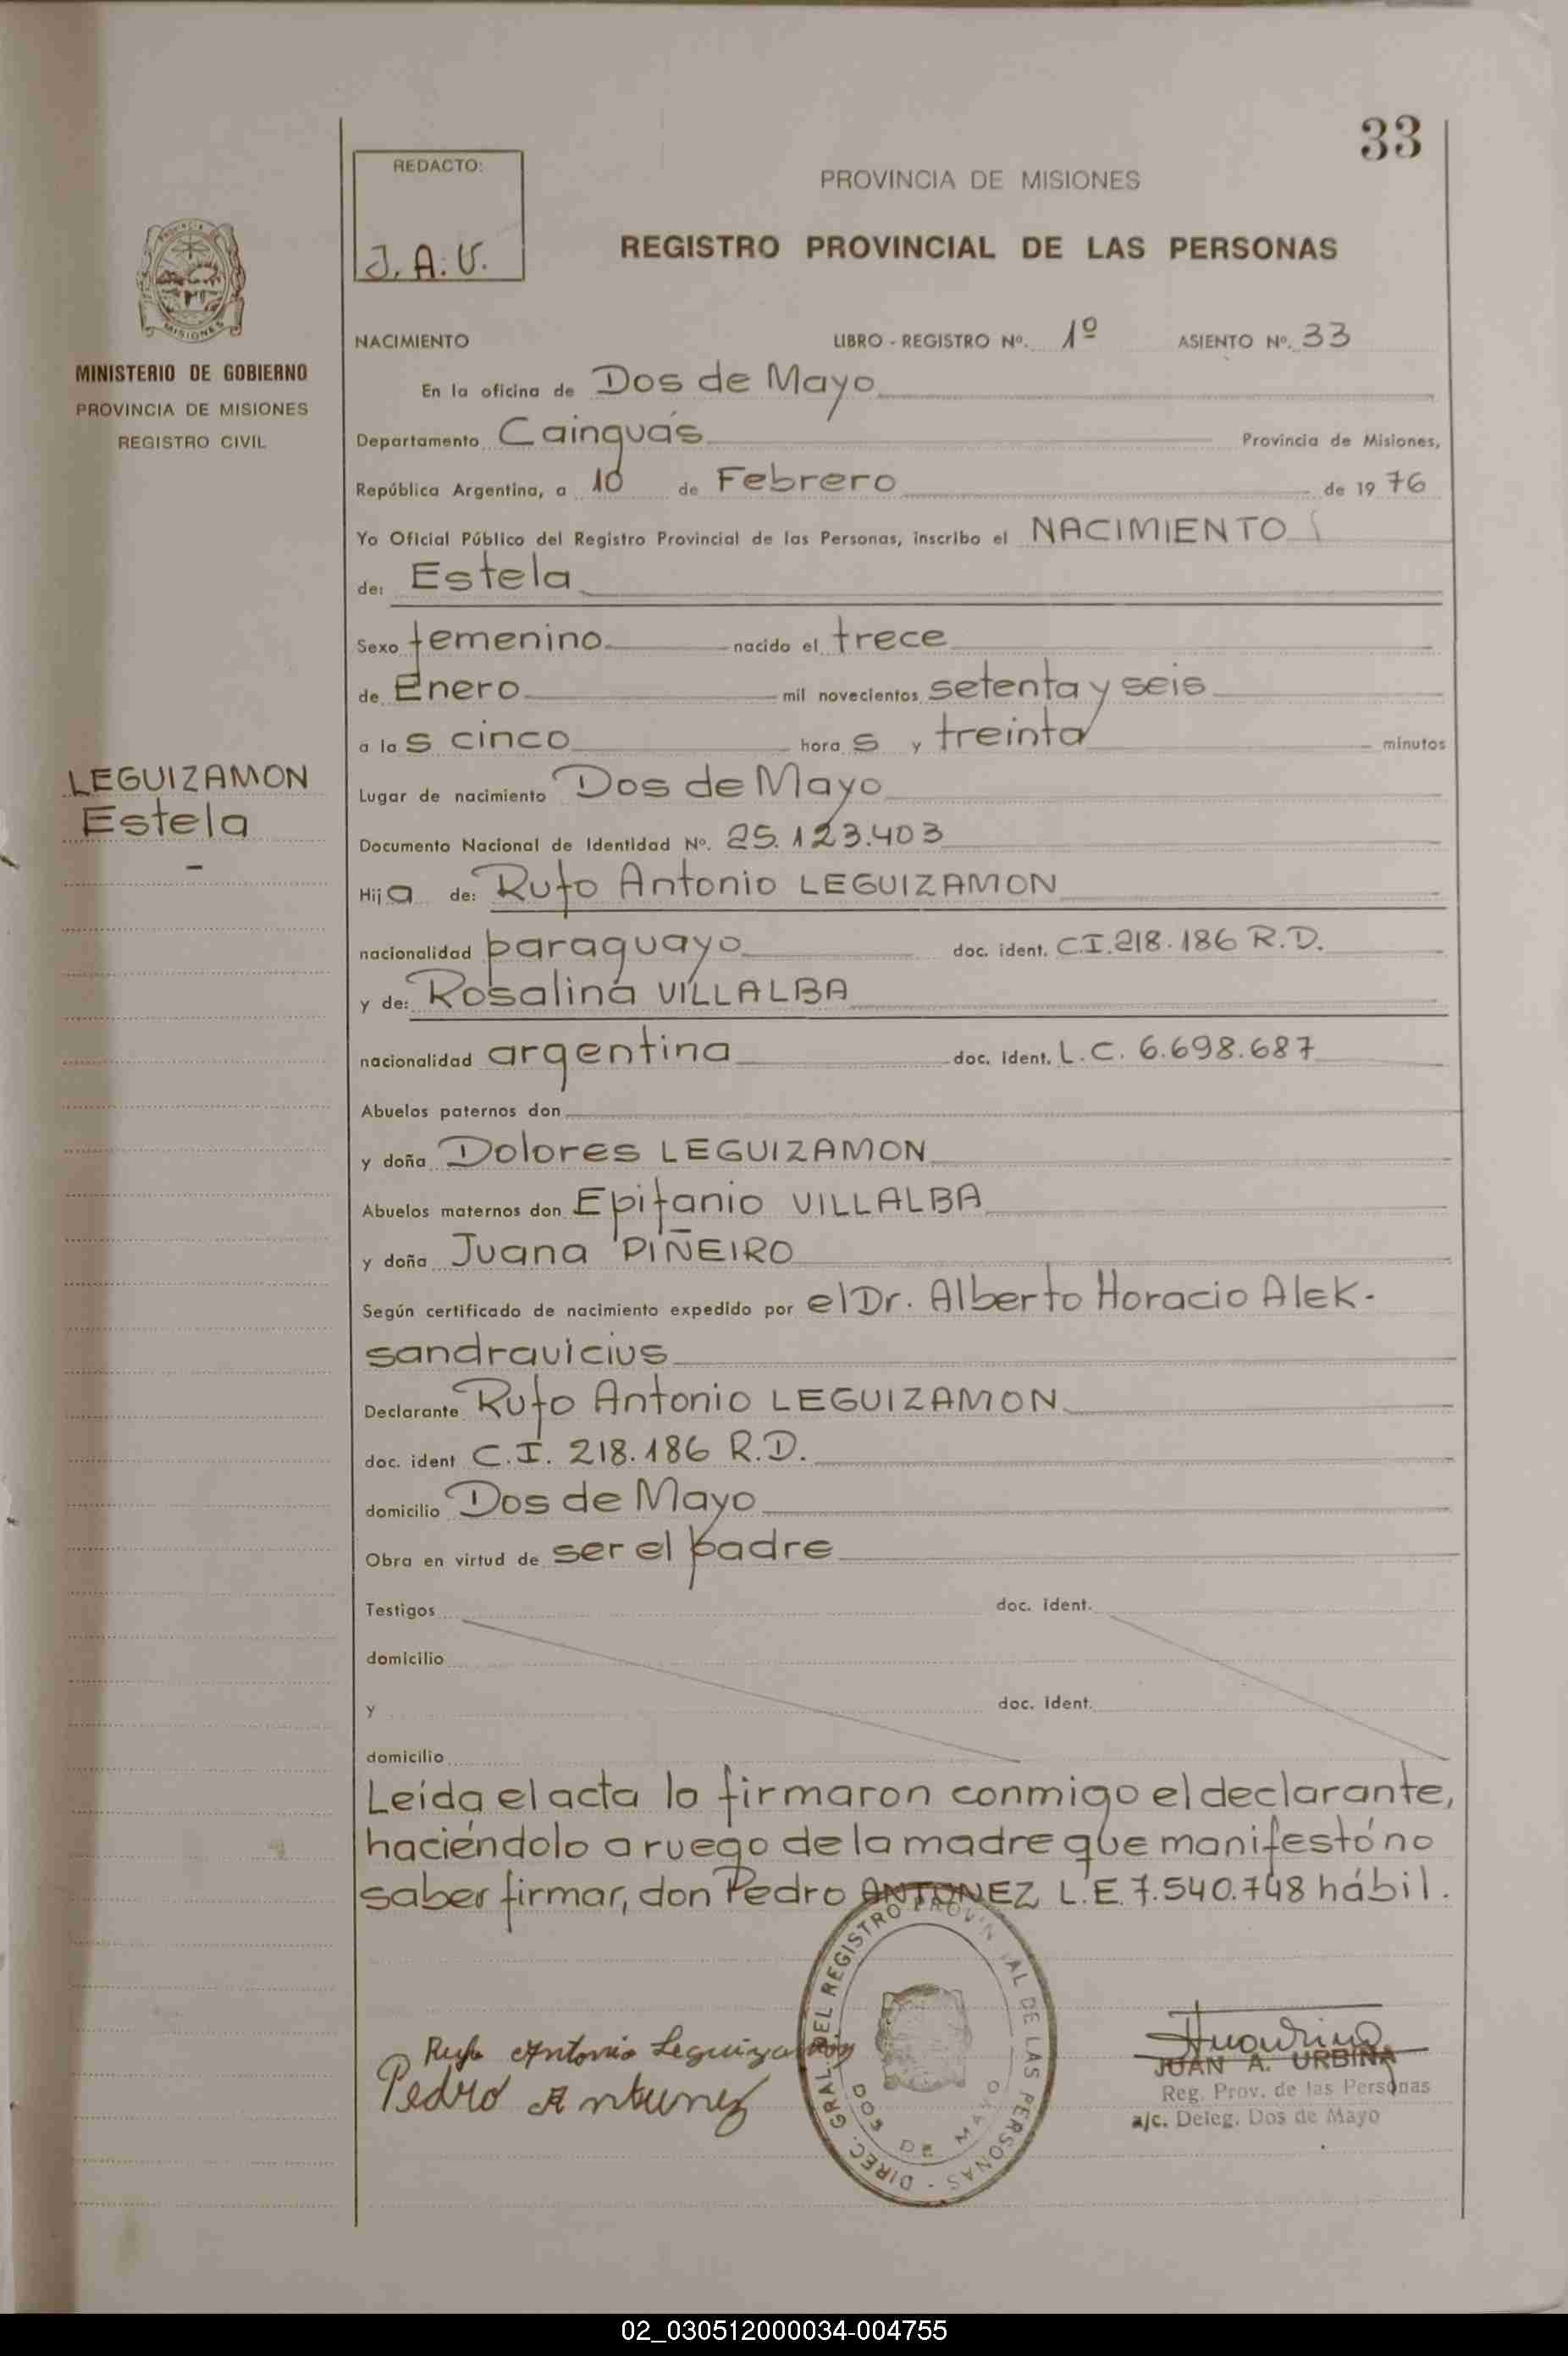 33
REDACTO:
J. A. U.
PROVINCIA DE MISIONES
REGISTRO PROVINCIAL DE LAS PERSONAS
PROVINCIA DE
MISIONES
MINISTERIO DE GOBIERNO
PROVINCIA DE MISIONES
REGISTRO CIVIL
NACIMIENTO LIBRO - REGISTRO Nº. 1º ASIENTO Nº. 33
En la oficina de Dos de Mayo
Departamento Cainguás Provincia de Misiones,
República Argentina, a 10 de Febrero de 1976
Yo Oficial Público del Registro Provincial de las Personas, inscribo el NACIMIENTO
de: Estela
Sexo femenino nacido el trece
de Enero mil novecientos setenta y seis
a las cinco horas y treinta minutos
LEGUIZAMON
Estela
Lugar de nacimiento Dos de Mayo
Documento Nacional de Identidad Nº. 25.123.403
Hija de: Rufo Antonio LEGUIZAMON
nacionalidad paraguayo doc. ident. C.I. 218.186 R.D.
y de: Rosalina VILLALBA
nacionalidad argentina doc. ident. L.C. 6.698.687
Abuelos paternos don
y doña Dolores LEGUIZAMON
Abuelos maternos don Epifanio VILLALBA
y doña Juana PIÑEIRO
Según certificado de nacimiento expedido por el Dr. Alberto Horacio Alek-
sandravicius
Declarante Rufo Antonio LEGUIZAMON
doc. ident C.I. 218.186 R.D.
domicilio Dos de Mayo
Obra en virtud de ser el padre
Testigos doc. ident.
domicilio
y doc. ident.
domicilio
Leída el acta lo firmaron conmigo el declarante,
haciéndolo a ruego de la madre que manifestó no
saber firmar, don Pedro ANTONEZ L.E. 7.540.748 hábil.
DIREC. GRAL. DEL REGISTRO PROVINCIAL DE LAS PERSONAS -
DOS DE MAYO
Rufo Antonio Leguizamon
Pedro Antunez
JUAN A. URBINA
Reg. Prov. de las Personas
a/c. Deleg. Dos de Mayo
02_030512000034-004755